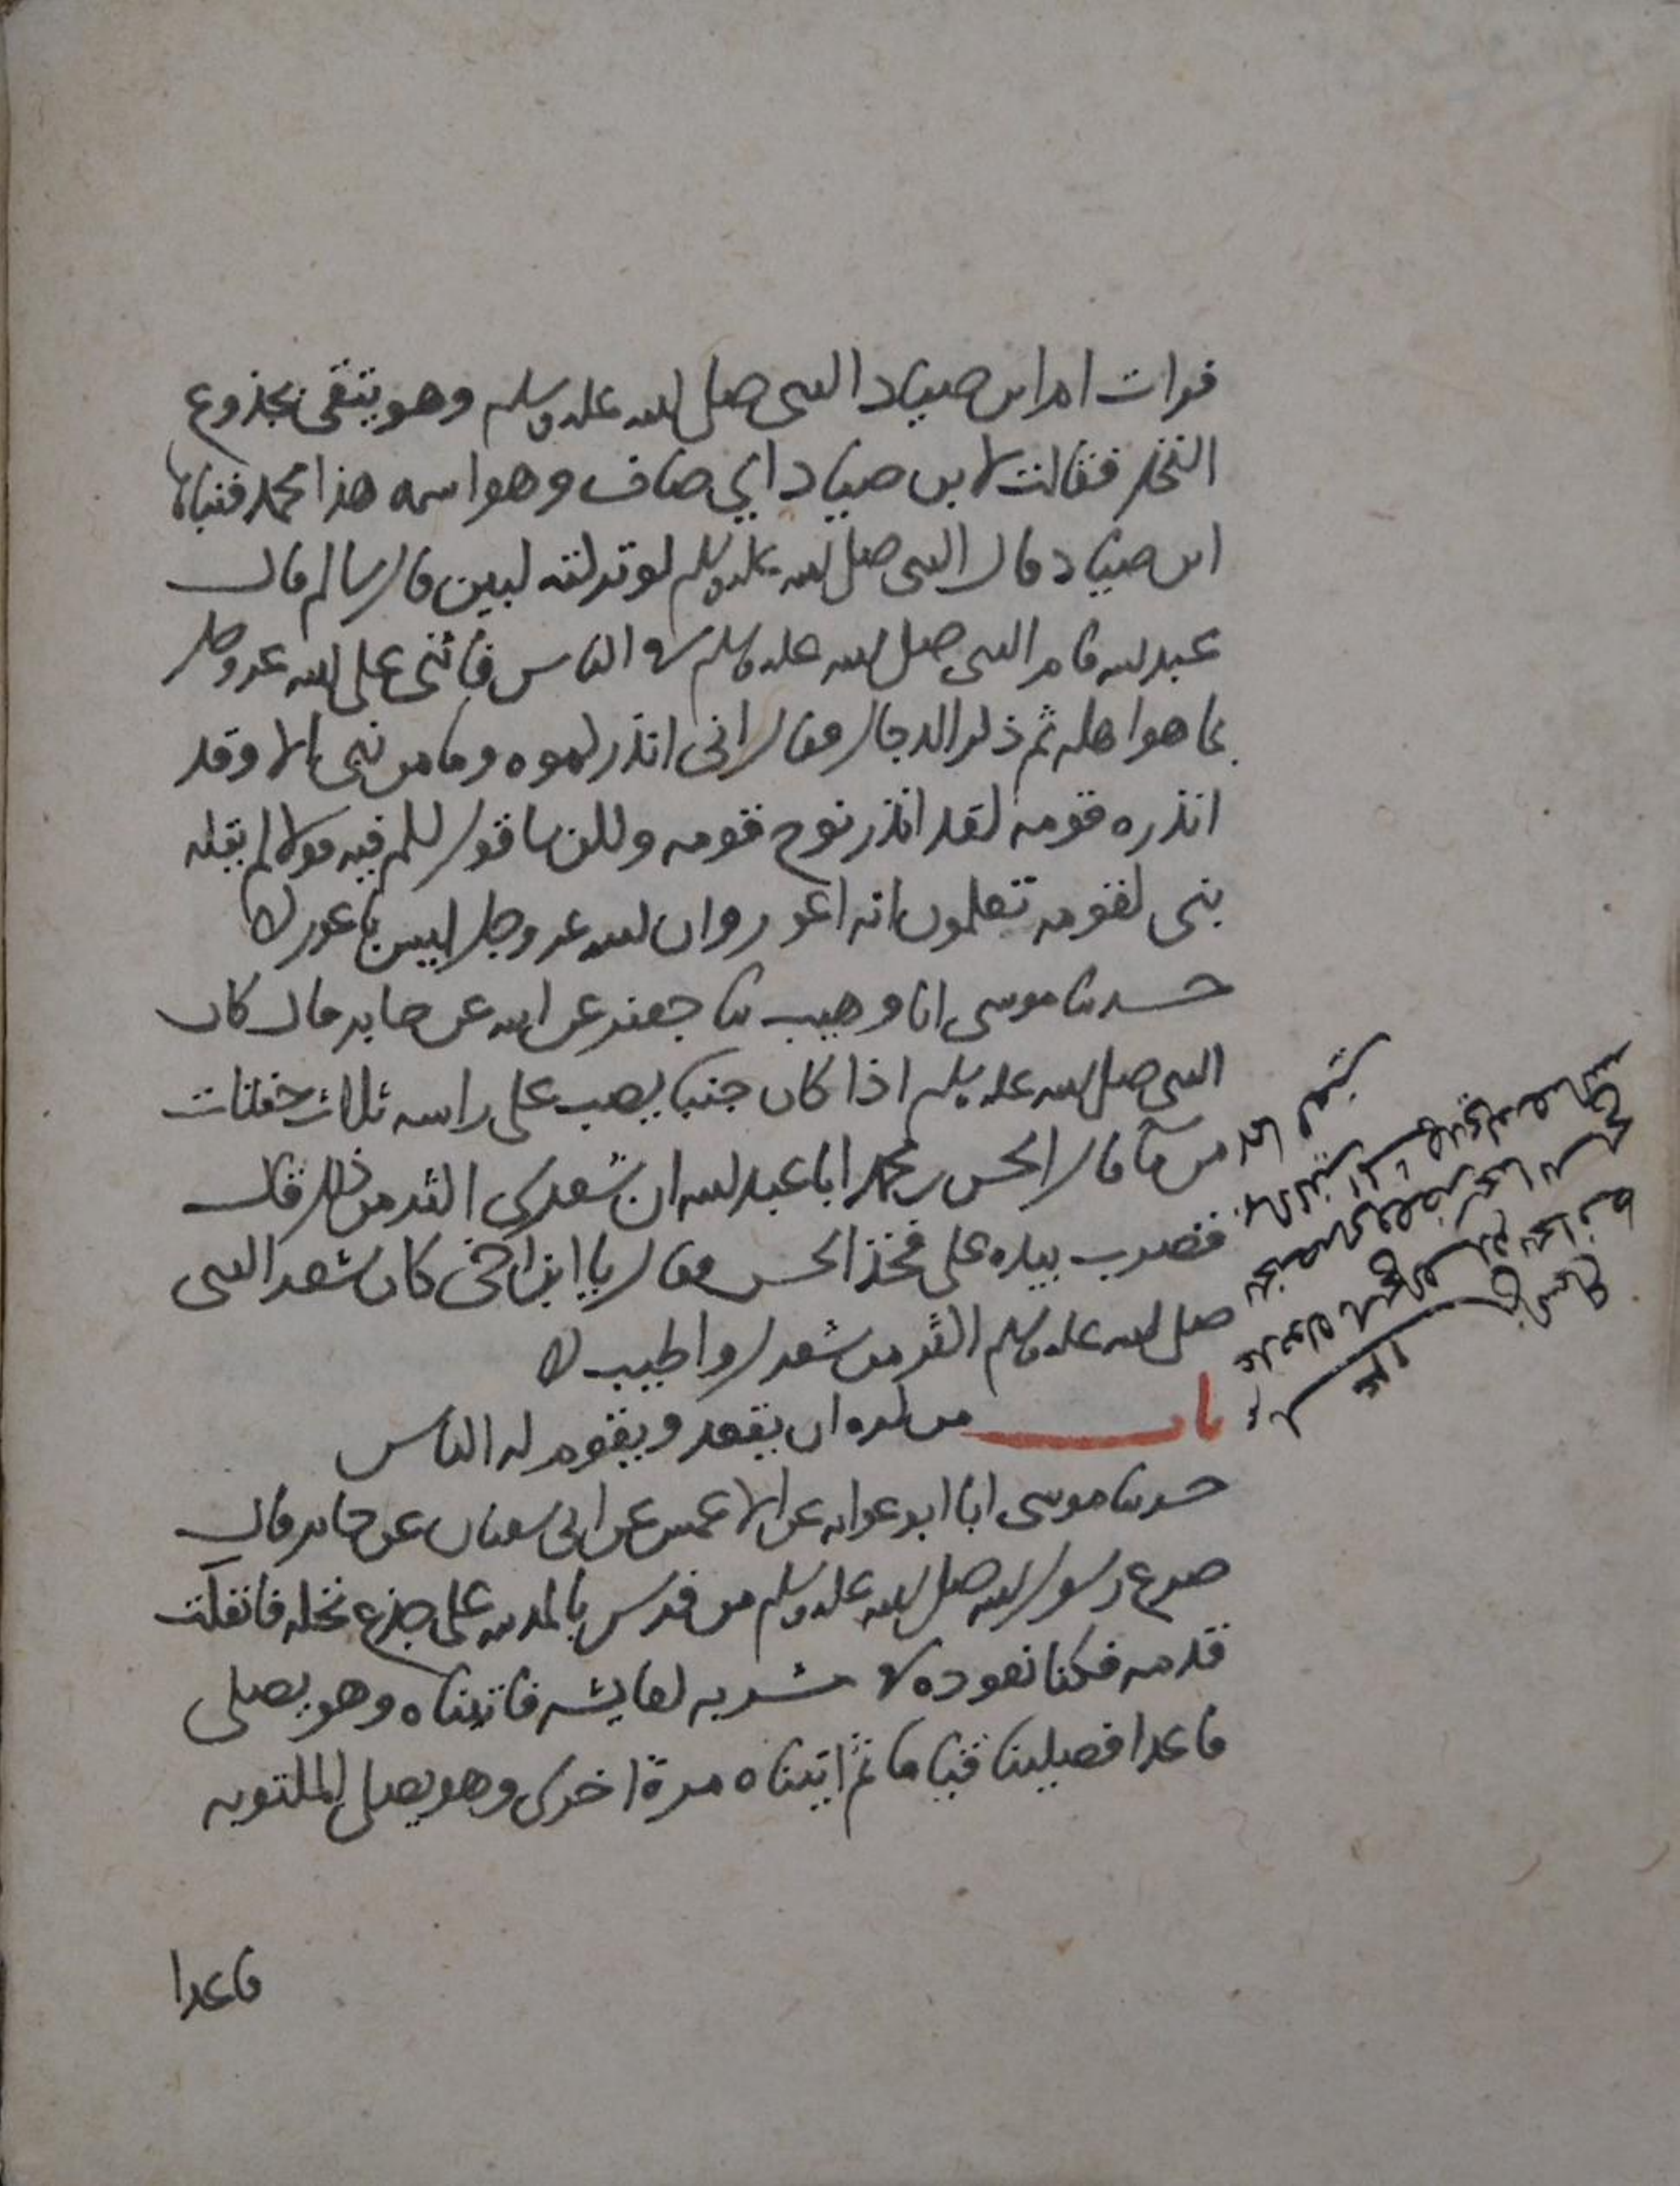 فرات ام ابن صياد النبي صلى الله عليه وسلم وهو يتقي بجذوع
النخل فقالت لابن صياد اي صاف وهو اسمه هذا محمد فتناها
ابن صياد قال النبي صلى الله عليه وسلم لو تركته لبين قال سالم قال
عبد الله قام النبي صلى الله عليه وسلم في الناس فاثنى على الله عز وجل
بما هو اهله ثم ذكر الدجال وقال اني انذركموه وما من نبي الا وقد
انذره قومه لقد انذر نوح قومه ولكن ساقول لكم فيه قولا لم يقله
نبي لقومه تعلمون انه اعور وان الله عز وجل ليس باعور
حدثنا موسى انا وهيب ثنا جعفر عن ابيه عن جابر قال كان
النبي صلى الله عليه وسلم اذا كان جنبا يصب على راسه ثلاث حفنات
من ما قال الحسن بن محمد ابا عبد الله ان شعري اكثر من ذلك قال
فضرب بيده على فخذ الحسن وقال يا ابن اخي كان شعر النبي
صلى الله عليه وسلم اكثر من شعرك واطيب
باب من كره ان يقعد ويقوم له الناس
حدثنا موسى انا ابو عوانه عن الاعمش عن ابي سفيان عن جابر قال
صرع رسول الله صلى الله عليه وسلم من فرس بالمدينه على جذع نخله فانفكت
قدمه فكنا نعوده في مشربه لعايشه فاتيناه وهو يصلي
قاعدا فصلينا قياما ثم اتيناه مرة اخرى وهو يصلي المكتوبه
قاعدا